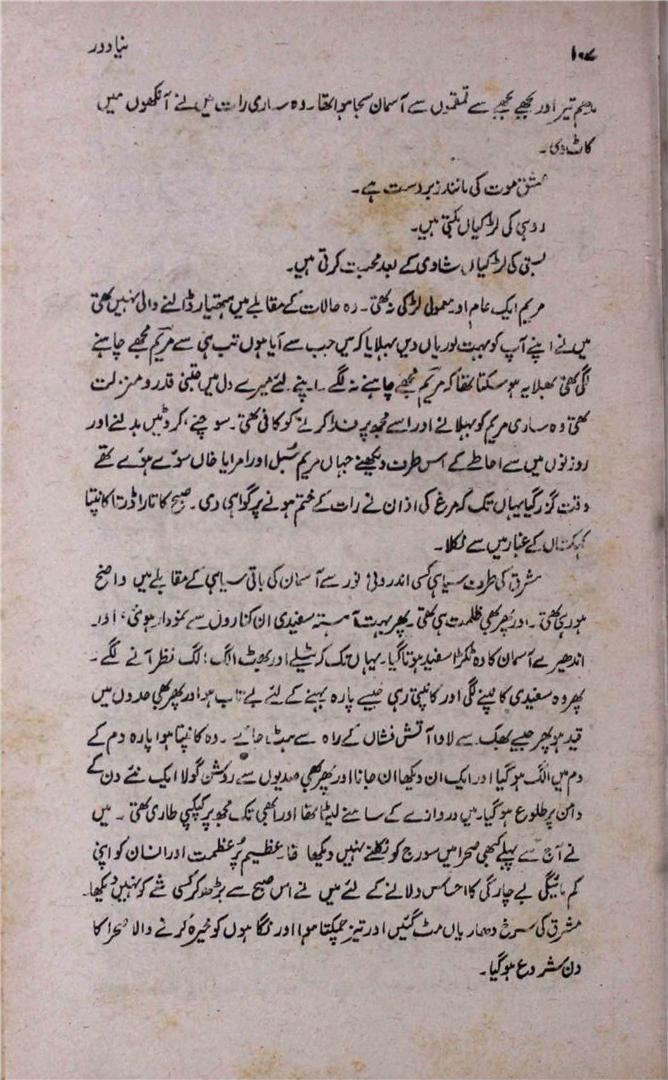 ۱۰۷ نیا دور
مدہم تیز اور بجھے بجھے سے قمقموں سے آسمان سجا ہوا تھا۔ وہ ساری رات میں نے آنکھوں میں
کاٹ دی۔
عشق موت کی مانند زبردست ہے۔
روہی کی لڑکیاں بکتی ہیں۔
بستی کی لڑکیاں شادی کے بعد محبت کرتی ہیں۔
مریم ایک عام اور معمولی لڑکی نہ تھی۔ وہ حالات کے مقابلے میں ہتھیار ڈالنے والی نہیں تھی
میں نے اپنے آپ کو بہت لوریاں دیں بہلایا کہ میں جب سے آیا ہوں تب ہی سے مریم مجھے چاہنے
لگی تھی بھلا یہ ہو سکتا تھا کہ مریم مجھے چاہنے نہ لگے۔ اپنے لئے میرے دل میں جتنی قدر و منزلت
تھی وہ ساری مریم کو بہلانے اور اسے مجھ پر فدا کرنے کو کافی تھی۔ سوچنے، کروٹیں بدلنے اور
روزنوں میں سے احاطے کے اس طرف دیکھنے جہاں مریم سُبل اور امرایا خاں سوئے ہوئے تھے
وقت گزر گیا یہاں تک کہ مرغ کی اذان نے رات کے ختم ہونے پر گواہی دی۔ صبح کا تارا ڈرتا کانپتا
کہکشاں کے غبار میں سے نکلا۔
مشرق کی طرف سیاہی کسی اندرونی نور سے آسمان کی باقی سیاہی کے مقابلے میں واضح
ہو رہی تھی۔ اور پھر بھی ظلمت ہی تھی۔ پھر بہت آہستہ سفیدی ان کناروں سے نمودار ہوئی، اور
اندھیرے آسمان کا وہ ٹکڑا سفید ہوتا گیا۔ یہاں تک کہ ٹیلے اور بھٹ الگ الگ نظر آنے لگے۔
پھر وہ سفیدی کانپنے لگی اور کانپتی رہی جیسے پارہ بہنے کے لئے بے تاب ہو اور پھر بھی حدوں میں
قید ہو پھر جیسے بھک سے لاوا آتش فشاں کے راہ سے ہٹ جائے۔ وہ کانپتا ہوا پارہ دم کے
دم میں الگ ہو گیا اور ایک ان دیکھا ان جانا اور پھر بھی صدیوں سے روشن گولا ایک نئے دن کے
دامن پر طلوع ہو گیا۔ میں دروازے کے سامنے لیٹا تھا اور ابھی تک مجھ پر کپکپی طاری تھی۔ میں
نے آج سے پہلے کبھی صحرا میں سورج کو نکلتے نہیں دیکھا تھا عظیم پُر عظمت اور انسان کو اپنی
کم مائیگی بے چارگی کا احساس دلانے کے لئے میں نے اس صبح سے بڑھ کر کسی شے کو نہیں دیکھا۔
مشرق کی سرخ دھاریاں مٹ گئیں اور تیز چمکتا ہوا اور نگاہوں کو خیرہ کرنے والا صحرا کا
دن شروع ہو گیا۔